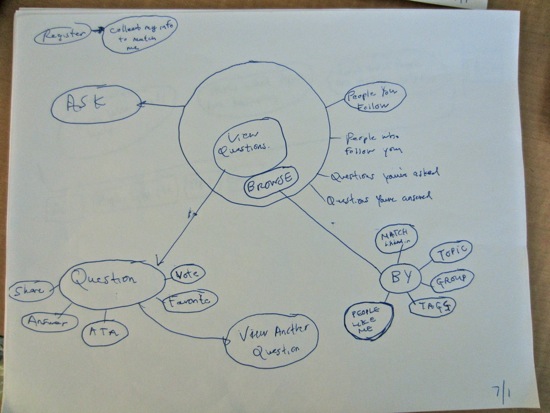 Register
collect reg info
to match
me
ASK
People You
Follow
View
Questions
People who
follow you
Questions you've asked
BROWSE
Question You've answered
MATCH
TOPIC
Question
Vote
BY
GROUP
Share
Favorite
TAGS
Answer
ATA
PEOPLE
LIKE
ME
View Another
Question
7/1